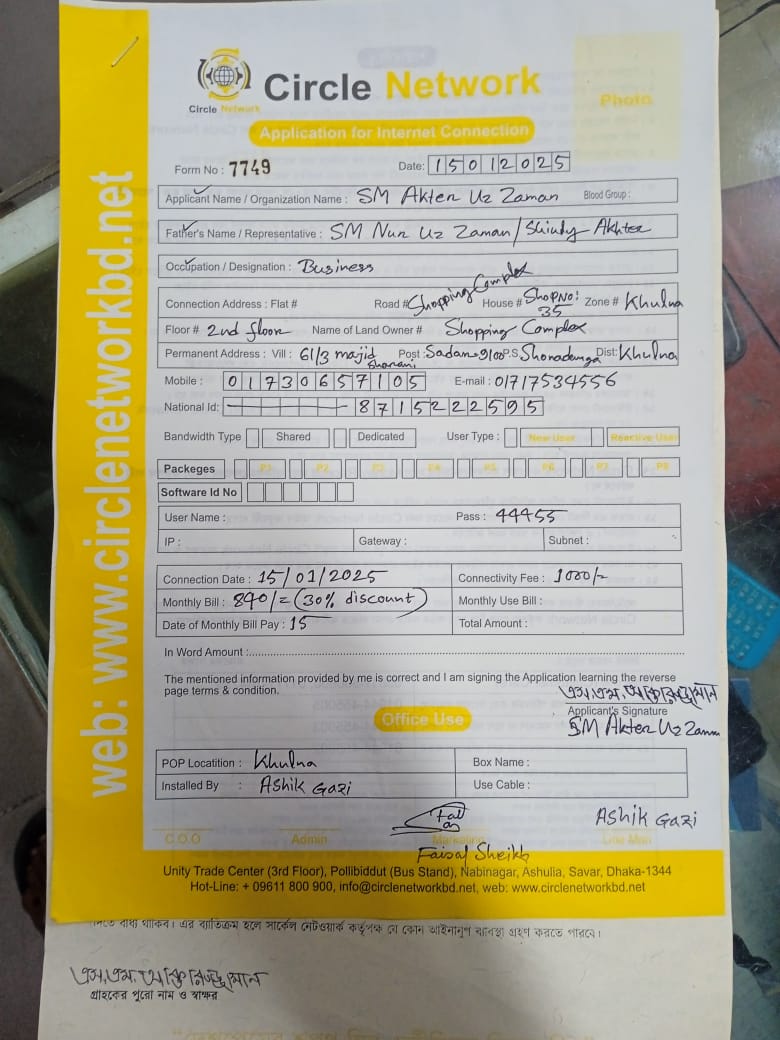 Circle Network
Circle Network
Photo
Application for Internet Connection
Form No : 7749 Date: 15012025
Applicant Name / Organization Name : SM Akter Uz Zaman Blood Group :
Father's Name / Representative : SM Nur Uz Zaman / Shiudy Akhter
Occupation / Designation : Business
Connection Address : Flat # Road # Shopping Complex House # Shop No: 35 Zone # Khulna
Floor # 2nd floor Name of Land Owner # Shopping Complex
Permanent Address : Vill : 61/3 majid Sharani Post : Sadar 9100 P.S Shonadanga Dist: Khulna
Mobile : 01730657105 E-mail : 01717534556
National Id: 8715222595
Bandwidth Type Shared Dedicated User Type : New User Reactive User
Packeges P1 P2 P3 P4 P5 P6 P7 P8
Software Id No
User Name : Pass : 44455
IP : Gateway : Subnet :
Connection Date : 15/01/2025 Connectivity Fee : 1000/-
Monthly Bill : 840/= (30% discount) Monthly Use Bill :
Date of Monthly Bill Pay : 15 Total Amount :
In Word Amount :
The mentioned information provided by me is correct and I am signing the Application learning the reverse
page terms & condition.
এস.এম. আক্তারুজ্জামান
Applicant's Signature
SM Akter Uz Zaman
Office Use
POP Locatition : Khulna Box Name :
Installed By : Ashik Gazi Use Cable :
Ashik Gazi
C.O.O Admin Marketing Line Man
Faisal Sheikh
Unity Trade Center (3rd Floor), Pollibiddut (Bus Stand), Nabinagar, Ashulia, Savar, Dhaka-1344
Hot-Line: + 09611 800 900, info@circlenetworkbd.net, web: www.circlenetworkbd.net
web: www.circlenetworkbd.net
বাধ্য থাকিব। এর ব্যতিক্রম হলে সার্কেল নেটওয়ার্ক কর্তৃপক্ষ যে কোন আইনানুগ ব্যাবস্থা গ্রহণ করতে পারবে।
এস.এম. আক্তারুজ্জামান
গ্রাহকের পুরো নাম ও স্বাক্ষর